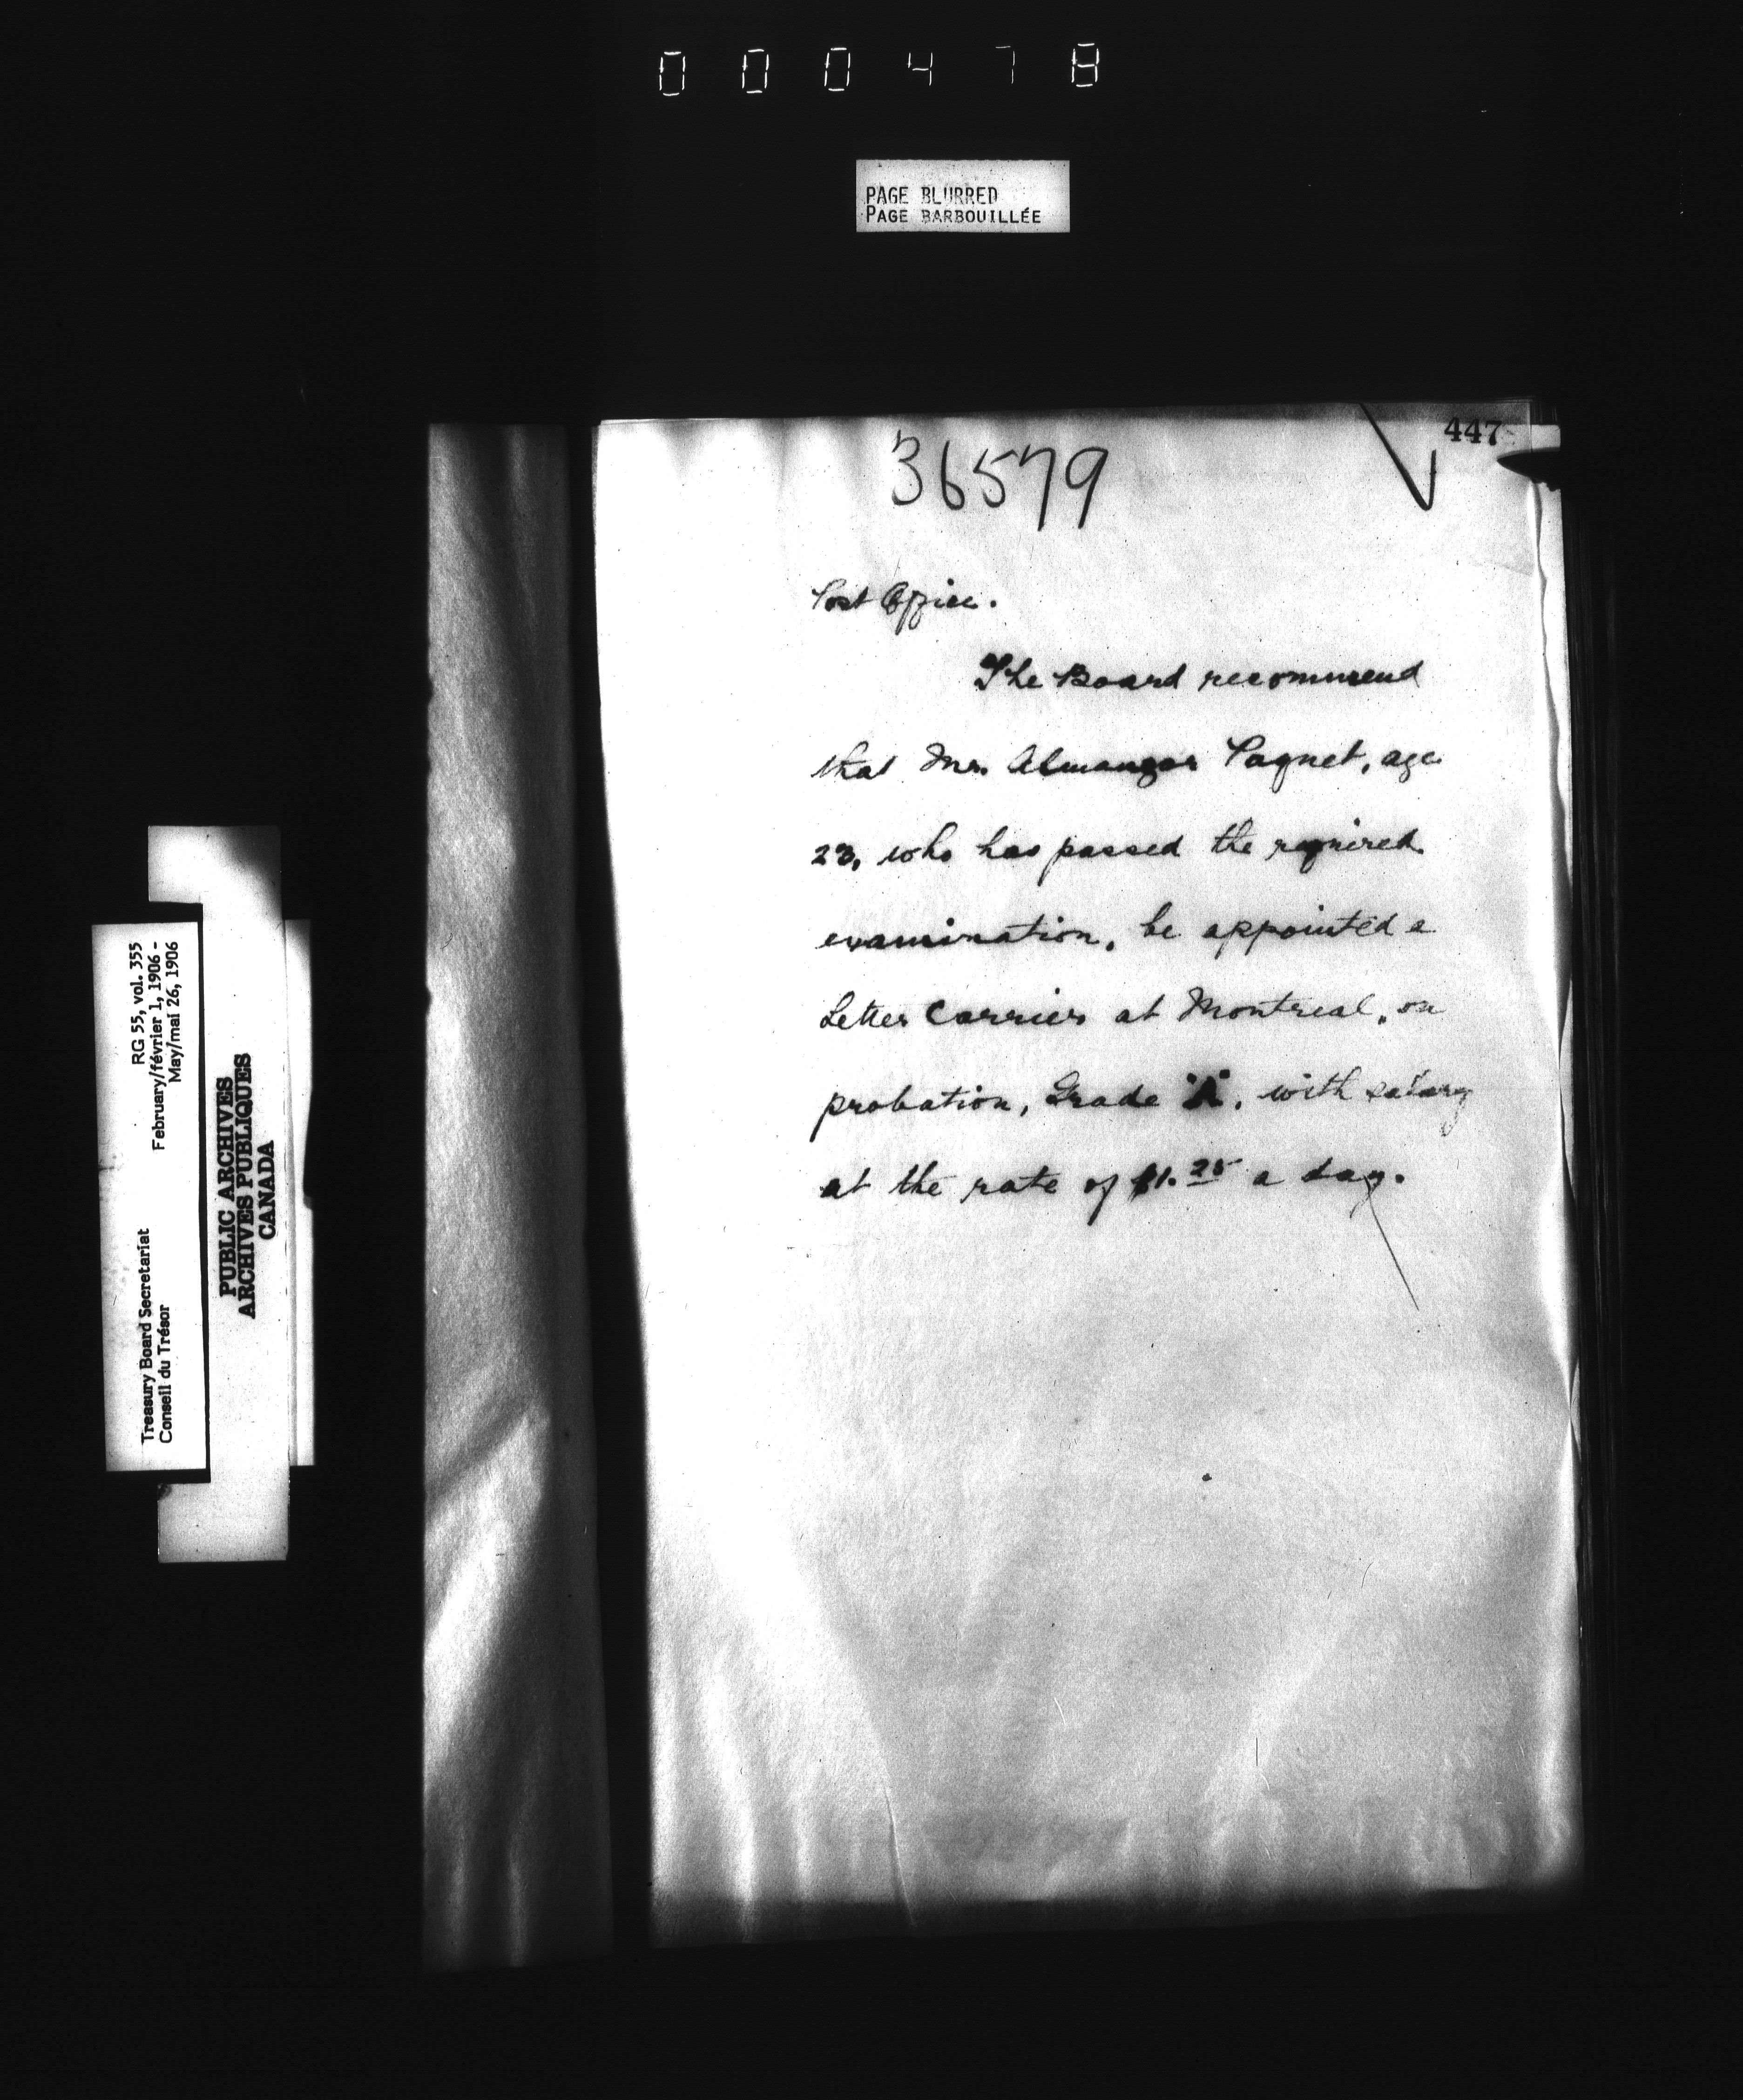 000478
PAGE BLURRED
PAGE BARBOUILLÉE
447
36579
Post Office.
The Board recommend
that Mr. Almanzor Paquet, age
23, who has passed the required
examination, be appointed a
Letter Carrier at Montreal, on
probation, Grade "A", with salary
at the rate of $1.25 a day.
RG 55, vol. 355
February/février 1, 1906 -
May/mai 26, 1906
Treasury Board Secretariat
Conseil du Trésor
PUBLIC ARCHIVES
ARCHIVES PUBLIQUES
CANADA